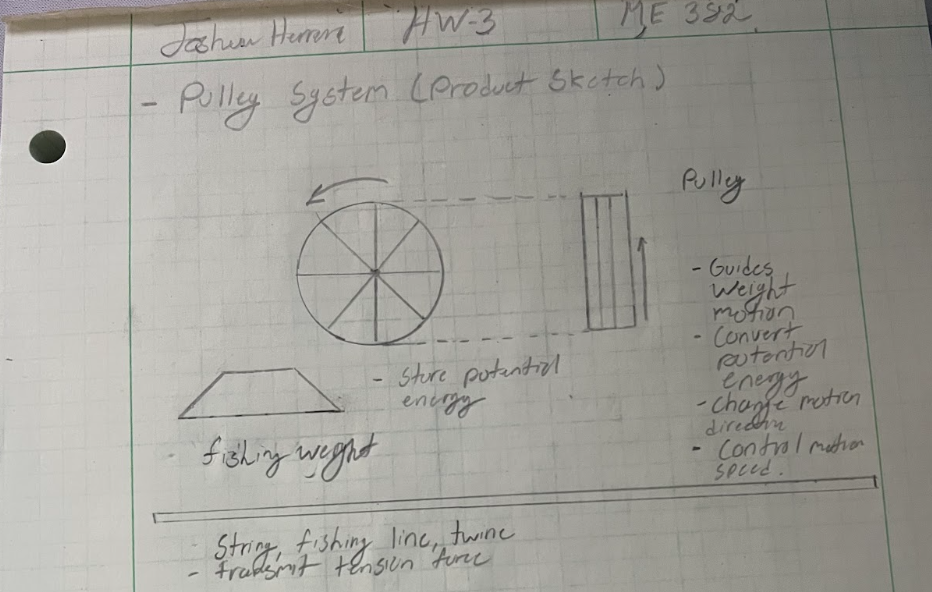 Joshua Herrera HW-3 ME 382
- Pulley System (Product Sketch)
Pulley
- Guides
weight
motion
- Convert
potential
energy
- Change motion
direction
- Control motion
speed.
- Store potential
energy
- fishing weght
- String, fishing line, twine
- transmit tension force